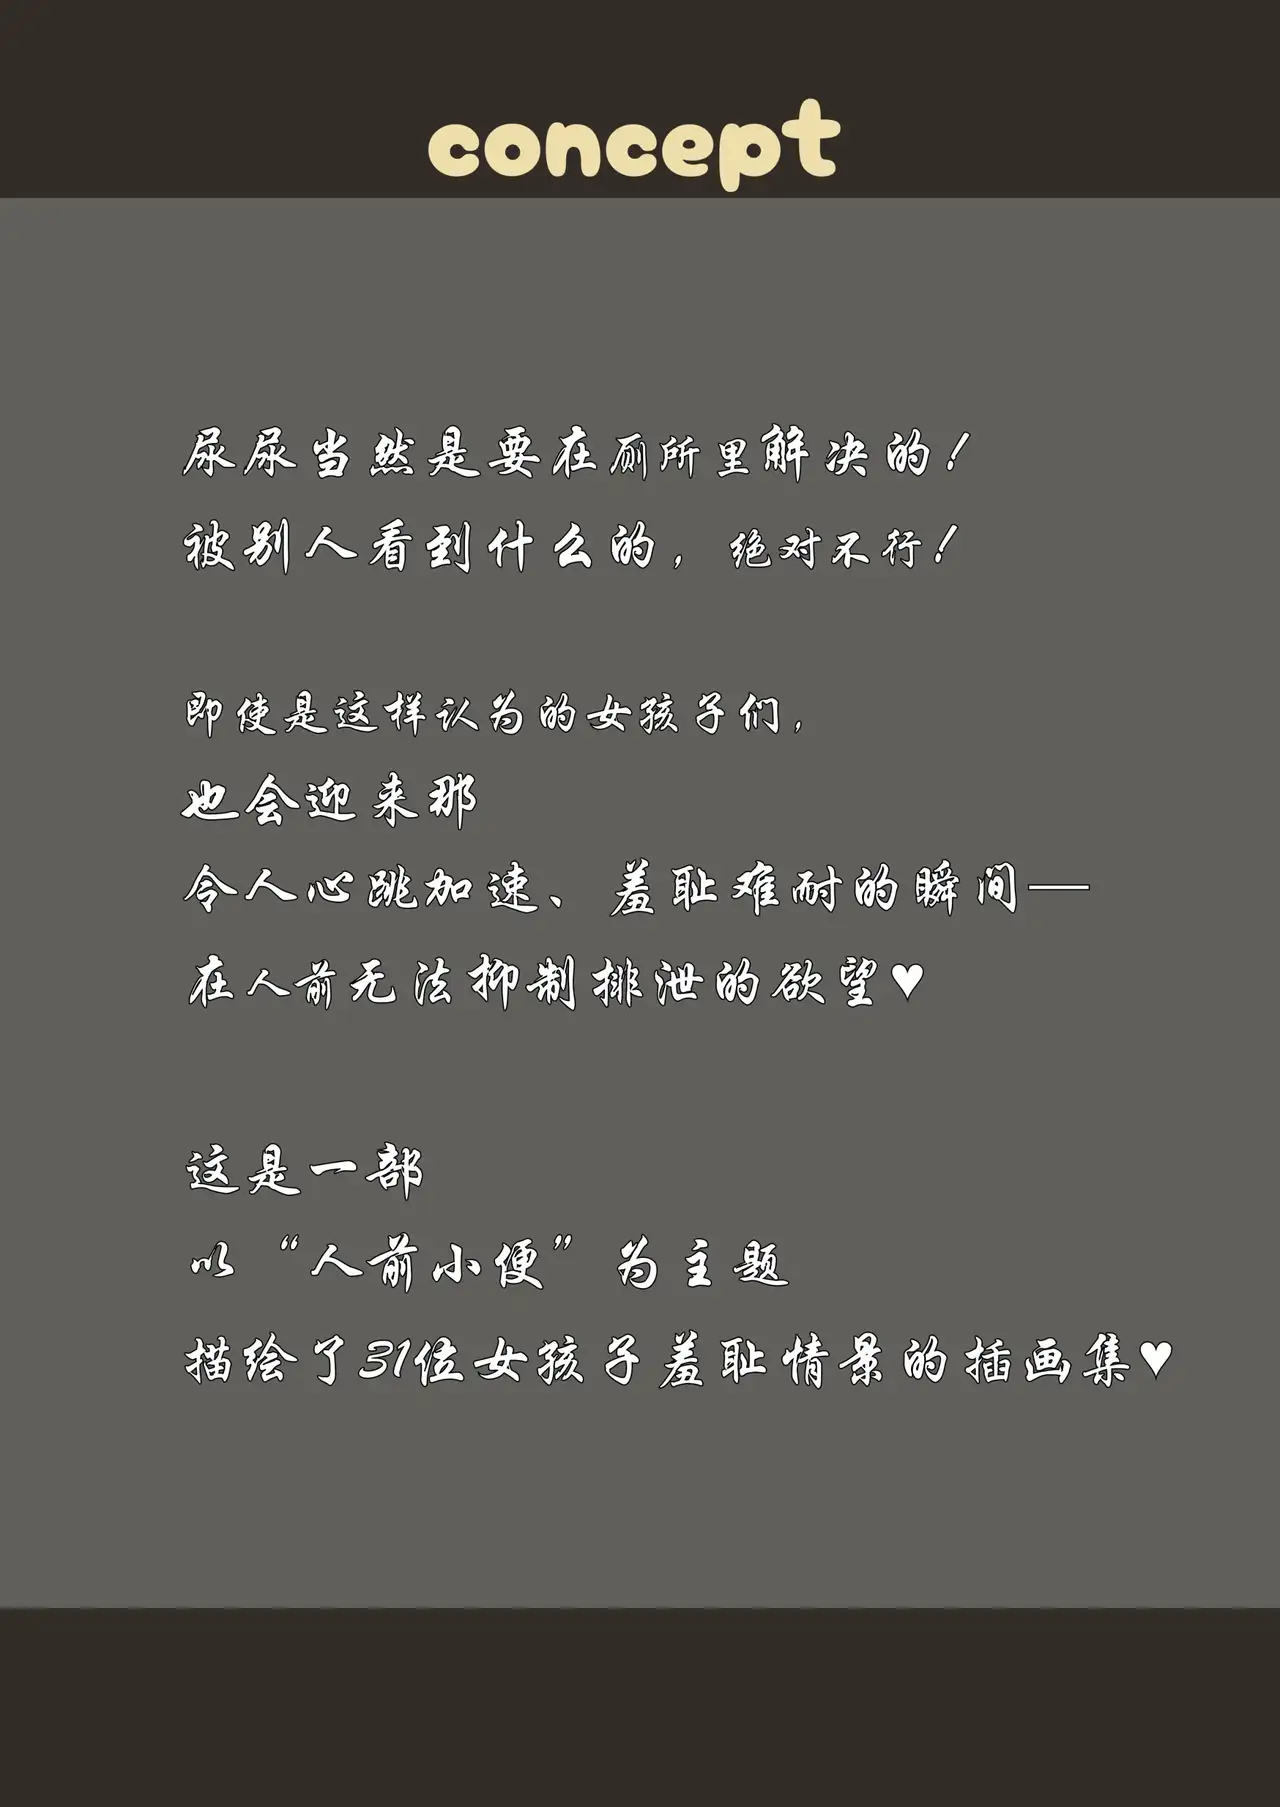 concept
尿尿当然是要在厕所里解决的！
被别人看到什么的，绝对不行！
即使是这样认为的女孩子们，
也会迎来那
令人心跳加速、羞耻难耐的瞬间—
在人前无法抑制排泄的欲望♥
这是一部
以“人前小便”为主题
描绘了31位女孩子羞耻情景的插画集♥